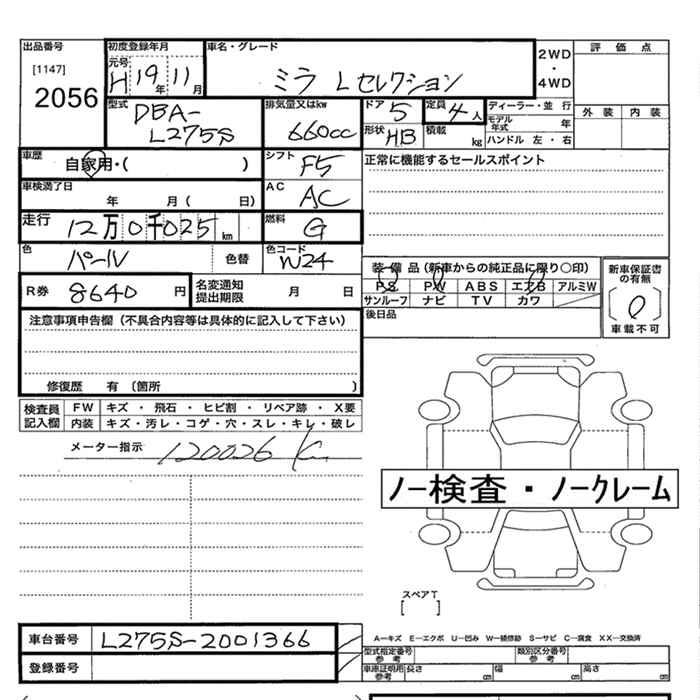 出品番号
[1147]
2056
初度登録年月
元号
H 19年 11月
車名・グレード
ミラ Lセレクション
2WD
・
4WD
評価点
外装 内装
型式
DBA-
L275S
排気量又はkw
660cc
ドア
5
定員
4人
形状
HB
積載
kg
ディーラー・並 行
モデル年式 年
ハンドル 左・右
車歴
自家用・( )
シフト
F5
正常に機能するセールスポイント
車検満了日
年 月( 日)
AC
AC
走行
12万0千025km
燃料
G
色
パール
色替
色コード
W24
装備品(新車からの純正品に限り○印)
PS PW ABS エアB アルミW
サンルーフ ナビ TV カワ
後日品
新車保証書
の有無
[0]
車載不可
R券 8640円
名変通知
提出期限
月 日
注意事項申告欄(不具合内容等は具体的に記入して下さい)
修復歴 有〔箇所 〕
検査員
記入欄
FW キズ・飛石・ヒビ割・リペア跡・X要
内装 キズ・汚レ・コゲ・穴・スレ・キレ・破レ
メーター指示 120026 K
ノー検査・ノークレーム
スペアT
[ ]
A―キズ E―エクボ U―凹み W―補修跡 S―サビ C―腐食 XX―交換済
車台番号 L275S-2001366
登録番号
型式指定番号
参考
類別区分番号
参考
車庫証明用
参考
長さ cm 幅 cm 高さ cm